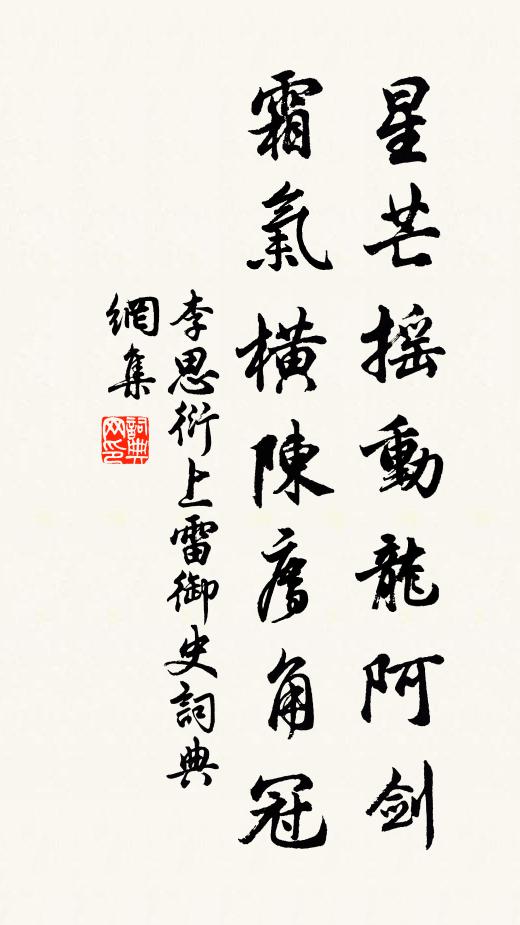 星芒摇動龍阿剑
霜氣横陳廌角冠
李思衍上雷御史詞典
網集
詞典
网印